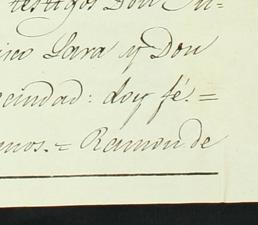 testigos Don Ju-
isco Lara y Don
ciudad: doy fé.=
mos.= Ramon de